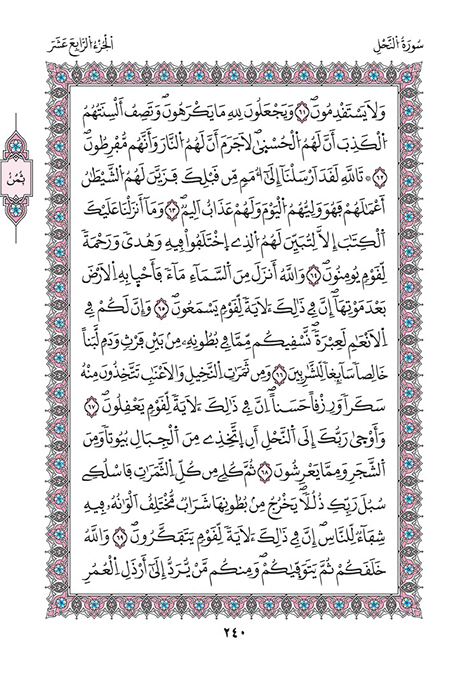 سُورَةُ اُلنَّحْلِ
اَلْجُزْءُ اُلرَّابِعَ عَشَرَ
وَلَا يَسْتَقْدِمُونَۖ ٦١ وَيَجْعَلُونَ لِلهِ مَا يَكْرَهُونَۖ وَتَصِفُ أَلْسِنَتُهُمُ
اُلْكَذِبَ أَنَّ لَهُمُ اُلْحُسْنَىٰۖ لَا جَرَمَ أَنَّ لَهُمُ اُلنَّارَ وَأَنَّهُم مُّفْرِطُونَۖ
٦٢ ۞ تَاللَّهِ لَقَدَ اَرْسَلْنَا إِلَىٰ أُمَمٖ مِّن قَبْلِكَ فَزَيَّنَ لَهُمُ اُلشَّيْطَٰنُ
أَعْمَٰلَهُمْ فَهُوَ وَلِيُّهُمُ اُلْيَوْمَ وَلَهُمْ عَذَابٌ اَلِيمٞۖ ٦٣ وَمَا أَنزَلْنَا عَلَيْكَ
اَلْكِتَٰبَ إِلَّا لِتُبَيِّنَ لَهُمُ اُلذِي اِخْتَلَفُواْ فِيهِ وَهُدىٗ وَرَحْمَةٗ
لِّقَوْمٖ يُومِنُونَۖ ٦٤ وَاللَّهُ أَنزَلَ مِنَ اَلسَّمَآءِ مَآءٗ فَأَحْيَا بِهِ اِلْأَرْضَ
بَعْدَ مَوْتِهَاۖ إِنَّ فِي ذَٰلِكَ ءَلَأيَةٗ لِّقَوْمٖ يَسْمَعُونَۖ ٦٥ وَإِنَّ لَكُمْ فِي
اِلْأَنْعَٰمِ لَعِبْرَةٗۖ نَّسْقِيكُم مِّمَّا فِي بُطُونِهِۦ مِنۢ بَيْنِ فَرْثٖ وَدَمٖ لَّبَناً
خَالِصاٗ سَآئِغاٗ لِّلشَّٰرِبِينَۖ ٦٦ وَمِن ثَمَرَٰتِ اِلنَّخِيلِ وَالْأَعْنَٰبِ تَتَّخِذُونَ مِنْهُ
سَكَراٗ وَرِزْقاً حَسَناًۖ اِنَّ فِي ذَٰلِكَ ءَلَأيَةٗ لِّقَوْمٖ يَعْقِلُونَۖ ٦٧
وَأَوْحَىٰ رَبُّكَ إِلَى اَلنَّحْلِ أَنِ اِتَّخِذِي مِنَ اَلْجِبَالِ بُيُوتاٗ وَمِنَ
اَلشَّجَرِ وَمِمَّا يَعْرِشُونَۖ ٦٨ ثُمَّ كُلِي مِن كُلِّ اِلثَّمَرَٰتِ فَاسْلُكِي
سُبُلَ رَبِّكِ ذُلُلاٗۖ يَخْرُجُ مِنۢ بُطُونِهَا شَرَابٞ مُّخْتَلِفٌ اَلْوَٰنُهُۥ فِيهِ
شِفَآءٞ لِّلنَّاسِۖ إِنَّ فِي ذَٰلِكَ ءَلَأيَةٗ لِّقَوْمٖ يَتَفَكَّرُونَۖ ٦٩ وَاللَّهُ
خَلَقَكُمْ ثُمَّ يَتَوَفَّيٰكُمْۖ وَمِنكُم مَّنْ يُّرَدُّ إِلَىٰ أَرْذَلِ اِلْعُمُرِ
ثُمُنُ
٢٤٠